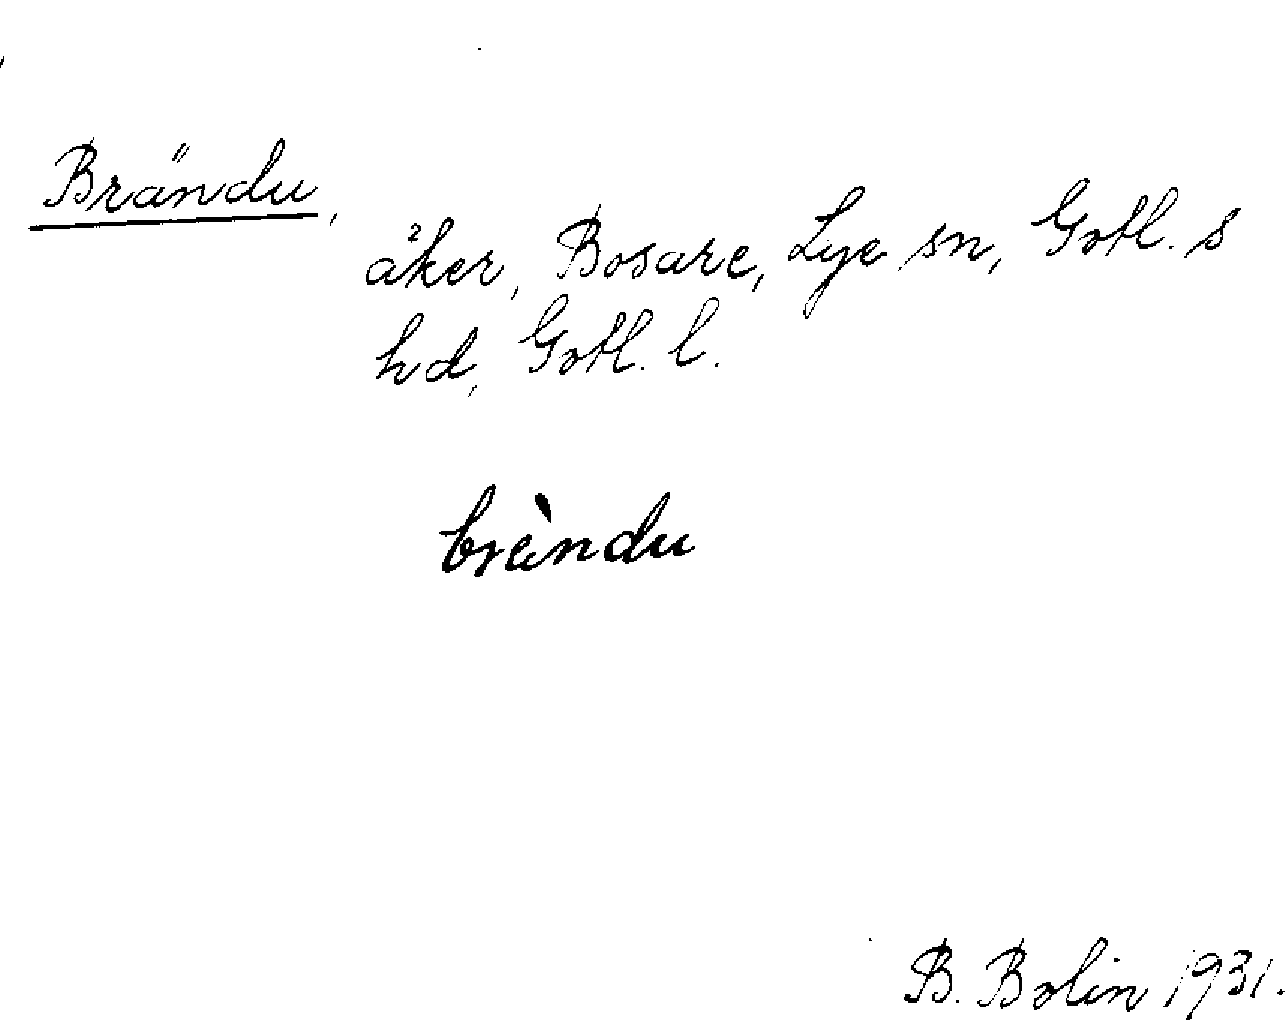 Brändu,
åker, Bosare, Lye sn, Gotl. s
hd, Gotl. l.
brèndu
B. Bolin 1931.